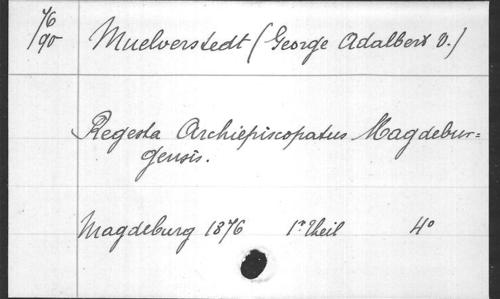 76/90
Muelverstedt (George Adalbert v.)
Regesta Archiepiscopatus Magdebur=
gensis.
Magdeburg 1876 1r Theil 4o